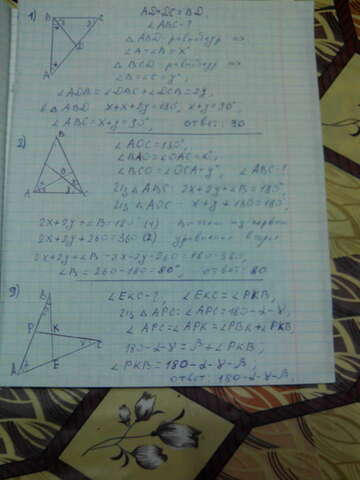 1) AD = DC = BD,
∠ABC - ?
△ABD - равнобедр
∠A = ∠B = x°
△BCD - равнобедр
∠B = ∠C = y°,
∠ADB = ∠DBC + ∠DCB = 2y,
△ABD x + x + 2y = 180°, x + y = 90°,
∠ABC = x + y = 90°, ответ: 90
2) ∠AOC = 130°,
∠BAO = ∠OAC = x°,
∠BCO = ∠OCA = y°, ∠ABC - ?
Из △ABC: 2x + 2y + ∠B = 180°
Из △AOC - x + y + 130 = 180,
2x + 2y + ∠B = 180° (1)
2x + 2y + 260 = 360 (2) уравнение
∠B = 260 - 180 = 80°, ответ: 80
3) ∠EKC - ?, ∠EKC = ∠PKB,
Из △APC: ∠APC = 180 - α - γ,
∠PKB
180 - α - γ = β + ∠PKB,
∠PKB = 180 - α - γ - β,
ответ: 180 - α - γ - β,